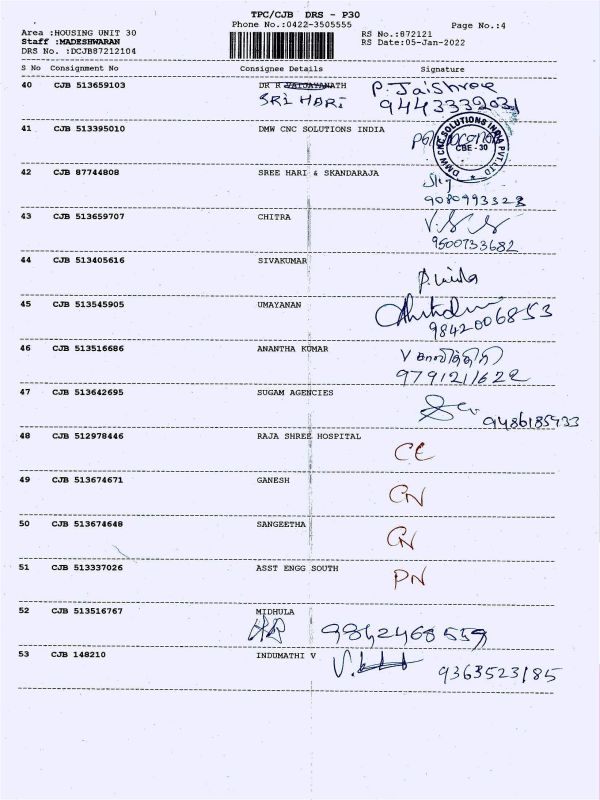 TPC/CJB DRS - P30
Phone No.:0422-3505555
Page No.:4
Area :HOUSING UNIT 30
RS No.:872121
Staff :MADESHWARAN
RS Date:05-Jan-2022
DRS No. :DCJB87212104
S No Consignment No Consignee Details Signature
40 CJB 513659103 DR R VAIJAYANATH P. Jaishree
SRI HARI 9443332031
41 CJB 513395010 DMW CNC SOLUTIONS INDIA
DMW CNC SOLUTIONS INDIA PVT LTD
CBE - 30
42 CJB 87744808 SREE HARI & SKANDARAJA
9080993323
43 CJB 513659707 CHITRA
9500733682
44 CJB 513405616 SIVAKUMAR
45 CJB 513545905 UMAYANAN
9842006853
46 CJB 513516686 ANANTHA KUMAR
9791211622
47 CJB 513642695 SUGAM AGENCIES
9486185933
48 CJB 512978446 RAJA SHREE HOSPITAL
CE
49 CJB 513674671 GANESH
GN
50 CJB 513674648 SANGEETHA
GN
51 CJB 513337026 ASST ENGG SOUTH
PN
52 CJB 513516767 MIDHULA
9842468559
53 CJB 148210 INDUMATHI V
9363523185